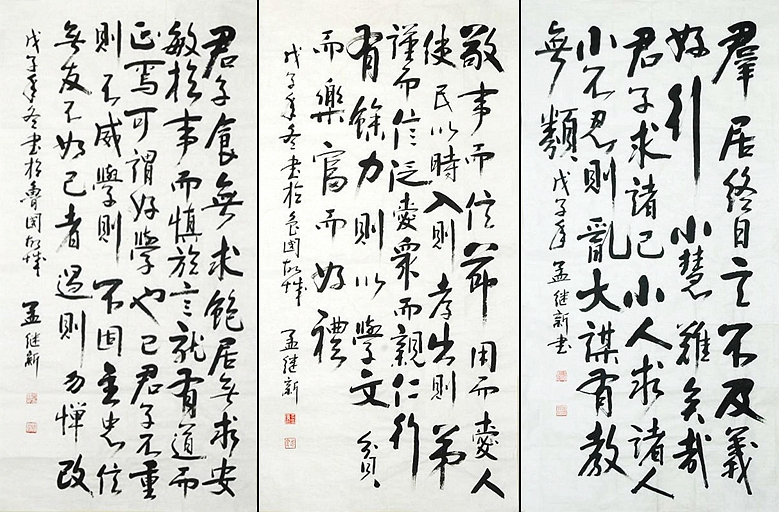 羣居終日言不及義
好行小慧難矣哉
君子求諸己小人求諸人
小不忍則亂大謀有教
無類 戊子年 孟继新书
敬事而信節用而愛人
使民以時入則孝出則弟
謹而信泛愛衆而親仁行
有餘力則以學文 貧
而樂富而好禮
戊子年冬书於魯国故城 孟继新
君子食無求飽居無求安
敏於事而慎於言就有道而
正焉可謂好學也已君子不重
則不威學則不固主忠信
無友不如己者過則勿憚改
戊子年冬书於魯国故城 孟继新